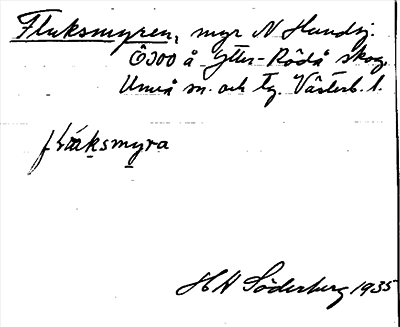 Fluksmyren, myr N Hundsj.
Ö300 å Ytter-Rödå skog.
Umeå sn. och tg. Västerb. l.
H H Söderberg 1935